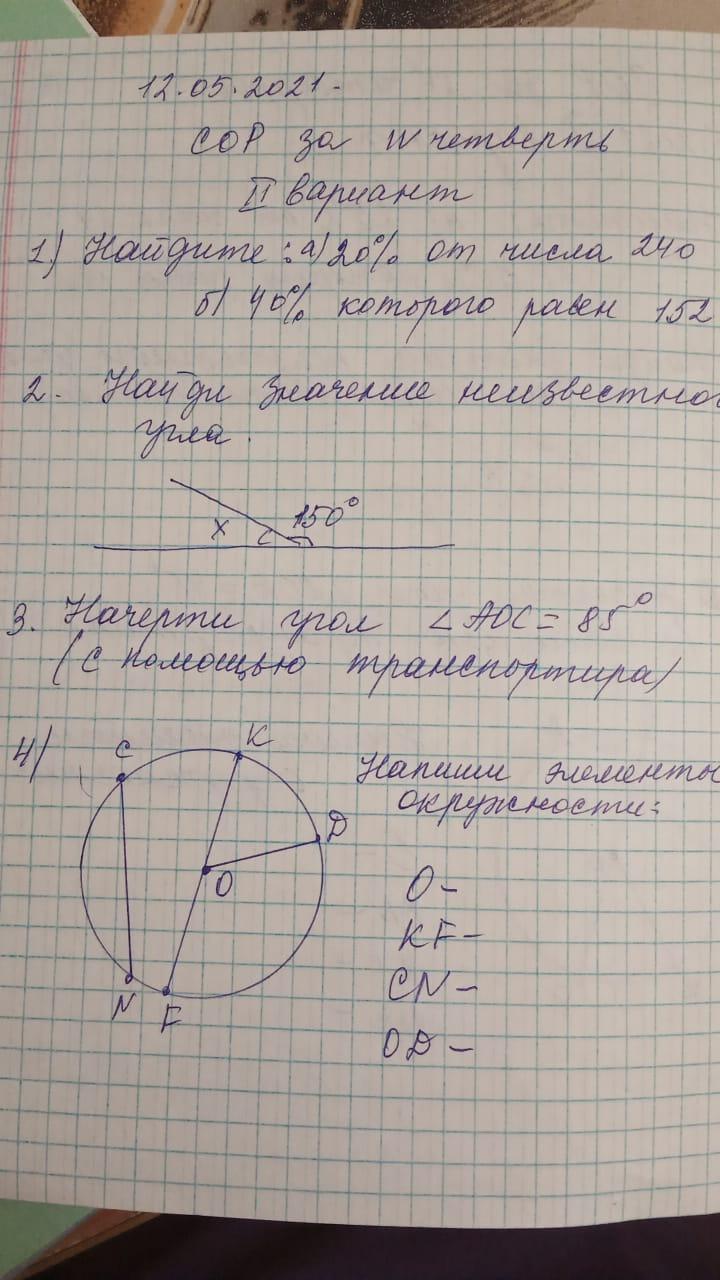 12.05.2021.
СОР за IV четверть
II вариант
1.) Найдите: а) 20% от числа 240
б) 40% которого равен 152
2. Найди значение неизвестног
угла.
x 150°
3. Начерти угол ∠AOC = 85°
(с помощью транспортира)
4)
C K
D
O
N F
Напиши элементы
окружности:
O-
KF-
CN-
OD-